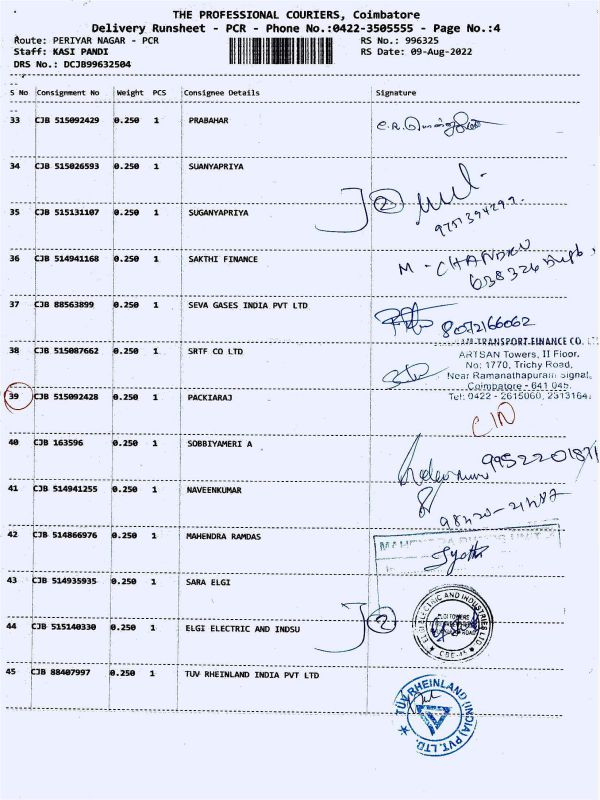 THE PROFESSIONAL COURIERS, Coimbatore
Delivery Runsheet - PCR - Phone No.:0422-3505555 - Page No.:4
Route: PERIYAR NAGAR - PCR RS No.: 996325
Staff: KASI PANDI RS Date: 09-Aug-2022
DRS No.: DCJB99632504
S No Consignment No Weight PCS Consignee Details Signature
33 CJB 515092429 0.250 1 PRABAHAR
34 CJB 515026593 0.250 1 SUANYAPRIYA
2
35 CJB 515131107 0.250 1 SUGANYAPRIYA
36 CJB 514941168 0.250 1 SAKTHI FINANCE M - CHANDRU
37 CJB 88563899 0.250 1 SEVA GASES INDIA PVT LTD 8072166062
38 CJB 515087662 0.250 1 SRTF CO LTD
TRANSPORT FINANCE CO.
ARTSAN Towers, II Floor,
No: 1770, Trichy Road,
Near Ramanathapuram Signal,
Coimbatore - 641 045.
Tel: 0422 - 2615060, 2313164
39 CJB 515092428 0.250 1 PACKIARAJ
40 CJB 163596 0.250 1 SOBBIYAMERI A
41 CJB 514941255 0.250 1 NAVEENKUMAR
42 CJB 514866976 0.250 1 MAHENDRA RAMDAS Jyothi
43 CJB 514935935 0.250 1 SARA ELGI
2
44 CJB 515140330 0.250 1 ELGI ELECTRIC AND INDSU
ELGI ELECTRIC AND INDUSTRIES LTD
ELGI TOWERS
45 CJB 88407997 0.250 1 TUV RHEINLAND INDIA PVT LTD
TUV RHEINLAND (INDIA) PVT. LTD.